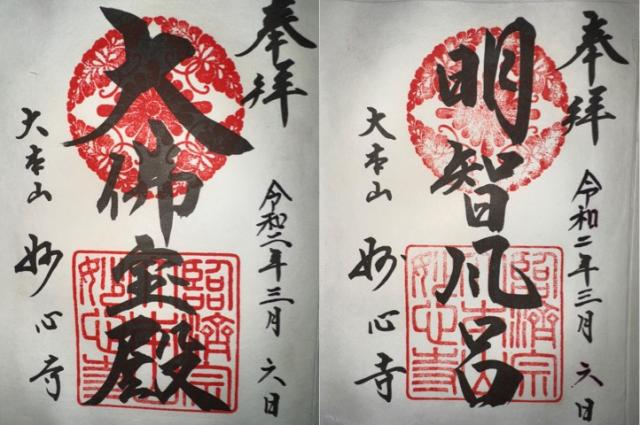 奉拝
令和二年三月六日
大佛宝殿
大本山
妙心寺
臨濟宗
妙心寺
奉拝
令和二年三月六日
明智風呂
大本山
妙心寺
臨濟宗
妙心寺